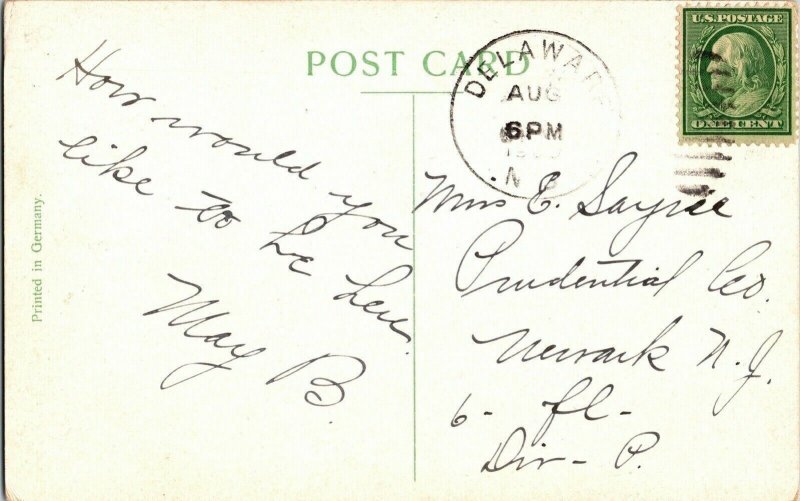 POST CARD
U.S. POSTAGE
ONE CENT
DELAWARE
AUG
6 PM
N.J.
How would you
like to be here.
May B.
Miss E. Sayre
Prudential Co.
Newark N.J.
6- fl-
Div- P.
Printed in Germany.